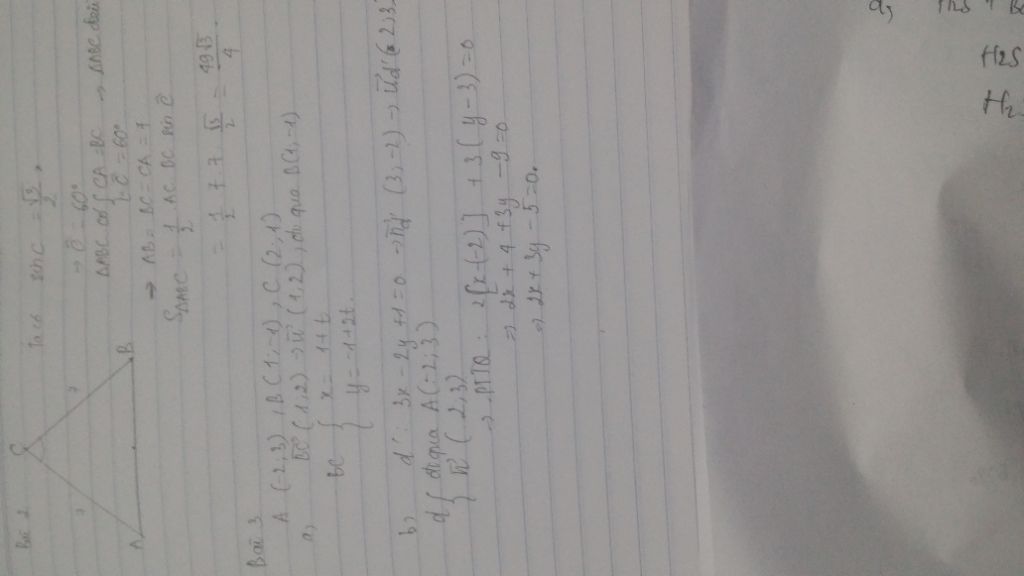 Bài 2
C
7
7
A
B
Ta có sin C = √3/2
→ Ĉ = 60°
ΔABC có { CA = BC
Ĉ = 60° → ΔABC đều
→ AB = BC = CA = 7
SΔABC = 1/2 AC BC sin Ĉ
= 1/2 7 7 √3/2 = 49√3/4
Bài 3
A (-2,3), B (1,-1), C (2,1)
a, BC (1,2) → u (1,2), đi qua B(1,-1)
BC { x = 1+t
y = -1+2t.
b, d': 3x - 2y +1 = 0 → nd' (3,-2) → ud' (2,3)
d { đi qua A(-2,3)
n (2,3)
→ PTTQ: 2[x-(-2)] + 3(y-3) = 0
⇒ 2x + 4 + 3y - 9 = 0
⇒ 2x + 3y - 5 = 0.
H2S